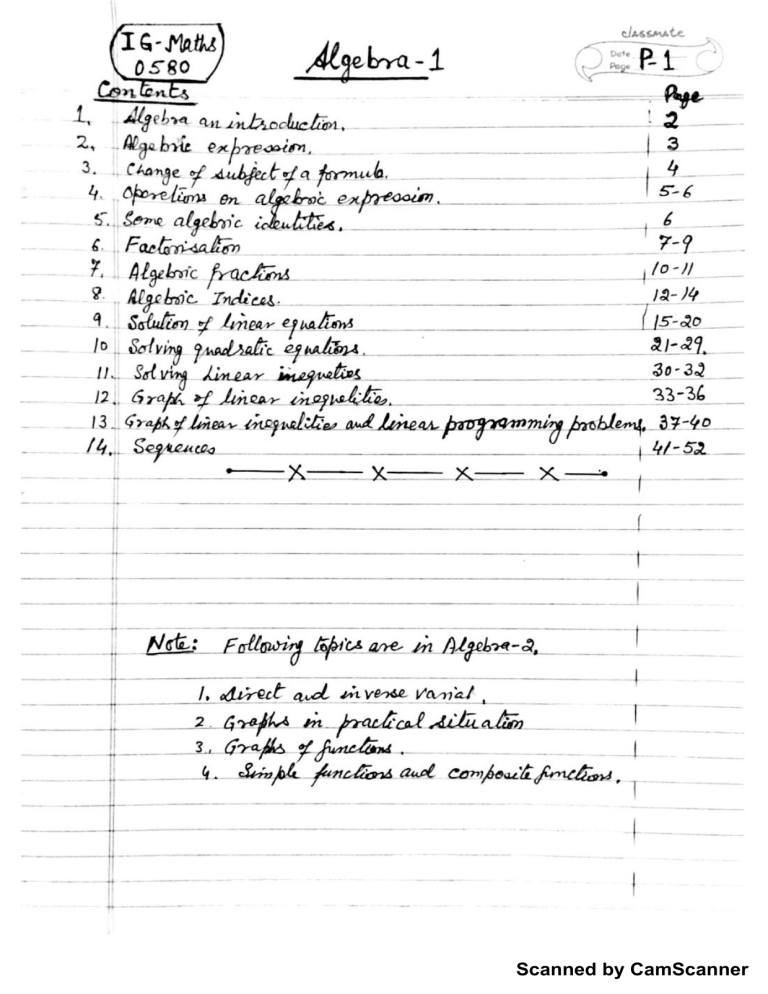 IG-Maths
0580
Algebra-1
classmate
Date
Page
P-1
Contents Page
1. Algebra an introduction. 2
2. Algebric expression. 3
3. Change of subject of a formula. 4
4. Operations on algebric expression. 5-6
5. Some algebric identities. 6
6. Factorisation 7-9
7. Algebric fractions 10-11
8. Algebric Indices. 12-14
9. Solution of linear equations 15-20
10 Solving quadratic equations. 21-29.
11. Solving Linear inequeties 30-32
12. Graph of linear inequelities. 33-36
13. Graph of linear inequelities and linear programming problems. 37-40
14. Sequences 41-52
x x x x
Note: Following topics are in Algebra-2.
1. Direct and inverse variat.
2. Graphs in practical situation
3. Graphs of functions.
4. Simple functions and composite functions.
Scanned by CamScanner